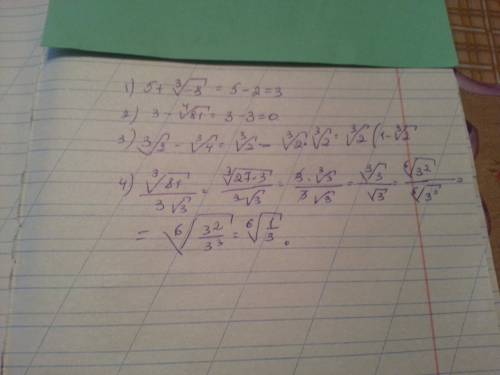 1) 5 + ∛-8 = 5 - 2 = 3
2) 3 - ∜81 = 3 - 3 = 0
3) ∛3 - ∛4 = ∛2 - ∛2 · ∛2 = ∛2 (1 - ∛2
4) ∛81 / 3√3 = ∛(27·3) / 3√3 = 3·∛3 / 3√3 = ∛3 / √3 = ⁶√3² / ⁶√3³ =
= ⁶√(3²/3³) = ⁶√(1/3).